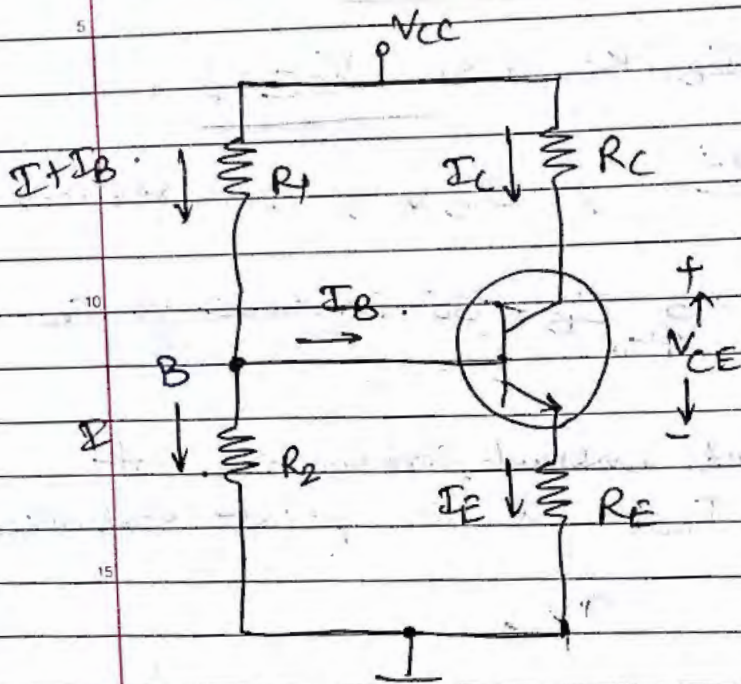 5
VCC
I+IB
R1
IC
RC
10
IB
+
VCE
-
B
I
R2
IE
RE
15